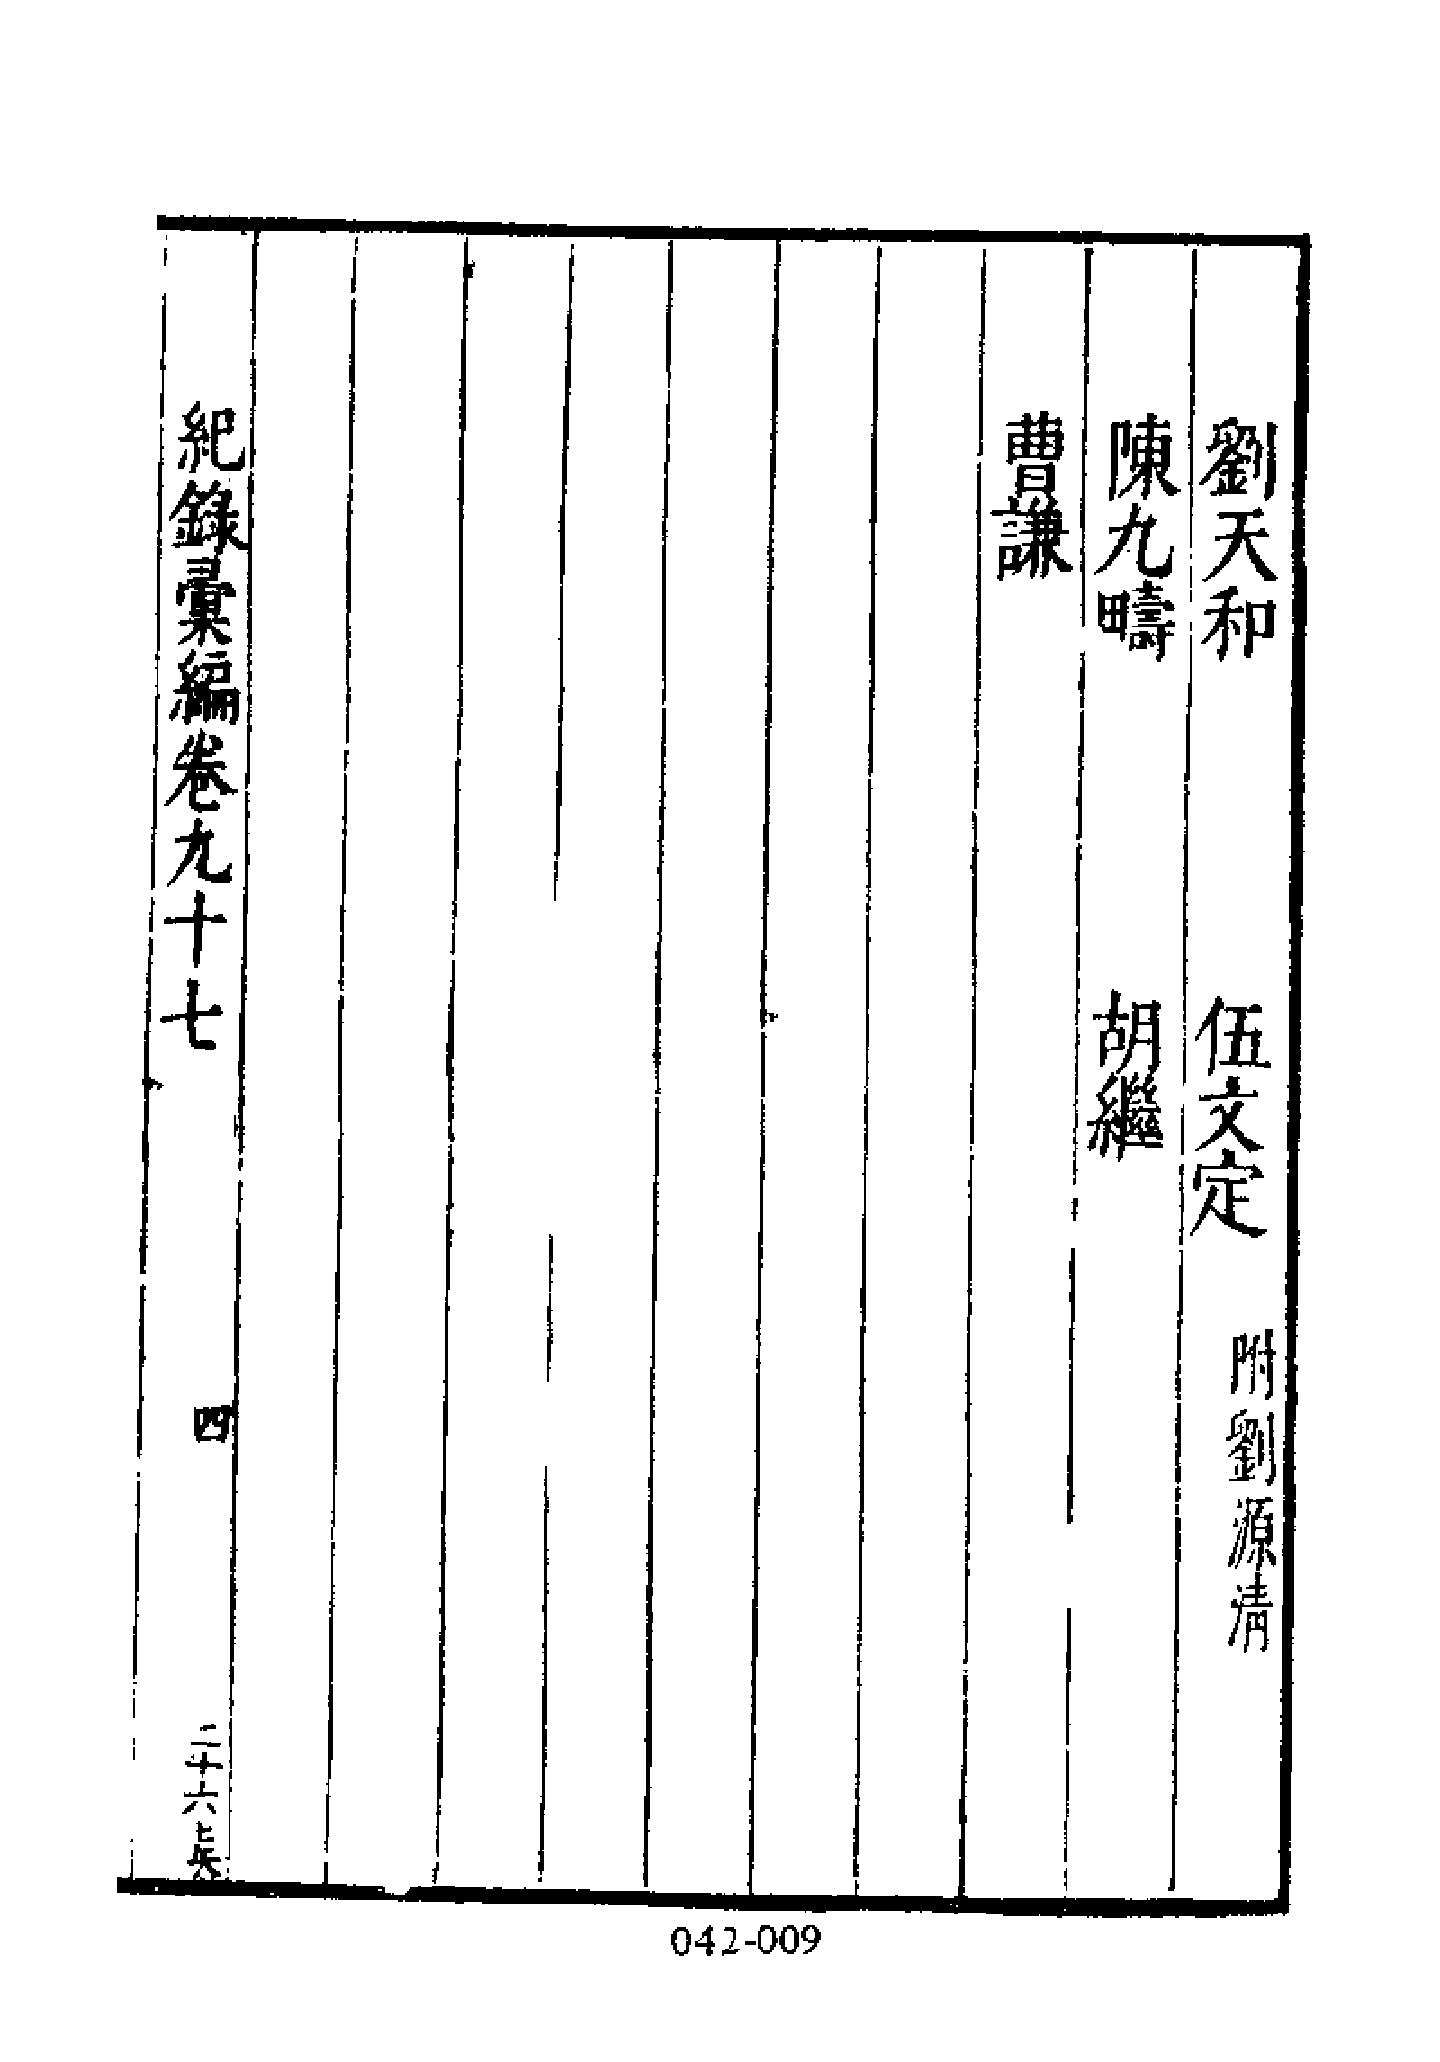 劉天和　伍文定　附劉源清
陳九疇　胡繼
曹謙
紀錄彙編卷九十七　四
042-009